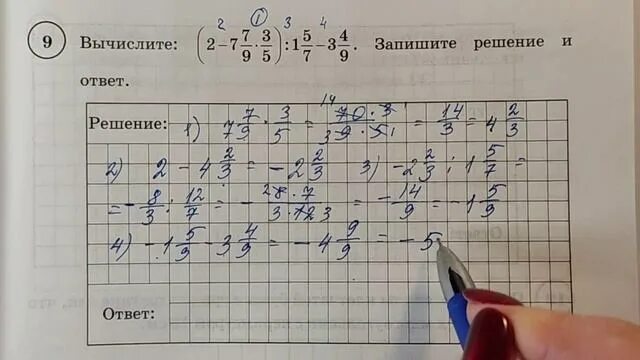 2 ① 3 4
9 Вычислите: (2−7 7/9 · 3/5) : 1 5/7 − 3 4/9. Запишите решение и
ответ.
Решение: 1) 7 7/9 · 3/5 = 14 70·3 1 / 3 9·5 1 = 14/3 = 4 2/3
2) 2 − 4 2/3 = −2 2/3 3) −2 2/3 : 1 5/7 =
= −8/3 : 12/7 = − 2 8·7 / 3·12 3 = −14/9 = −1 5/9
4) −1 5/9 − 3 4/9 = −4 9/9 = −5
Ответ: